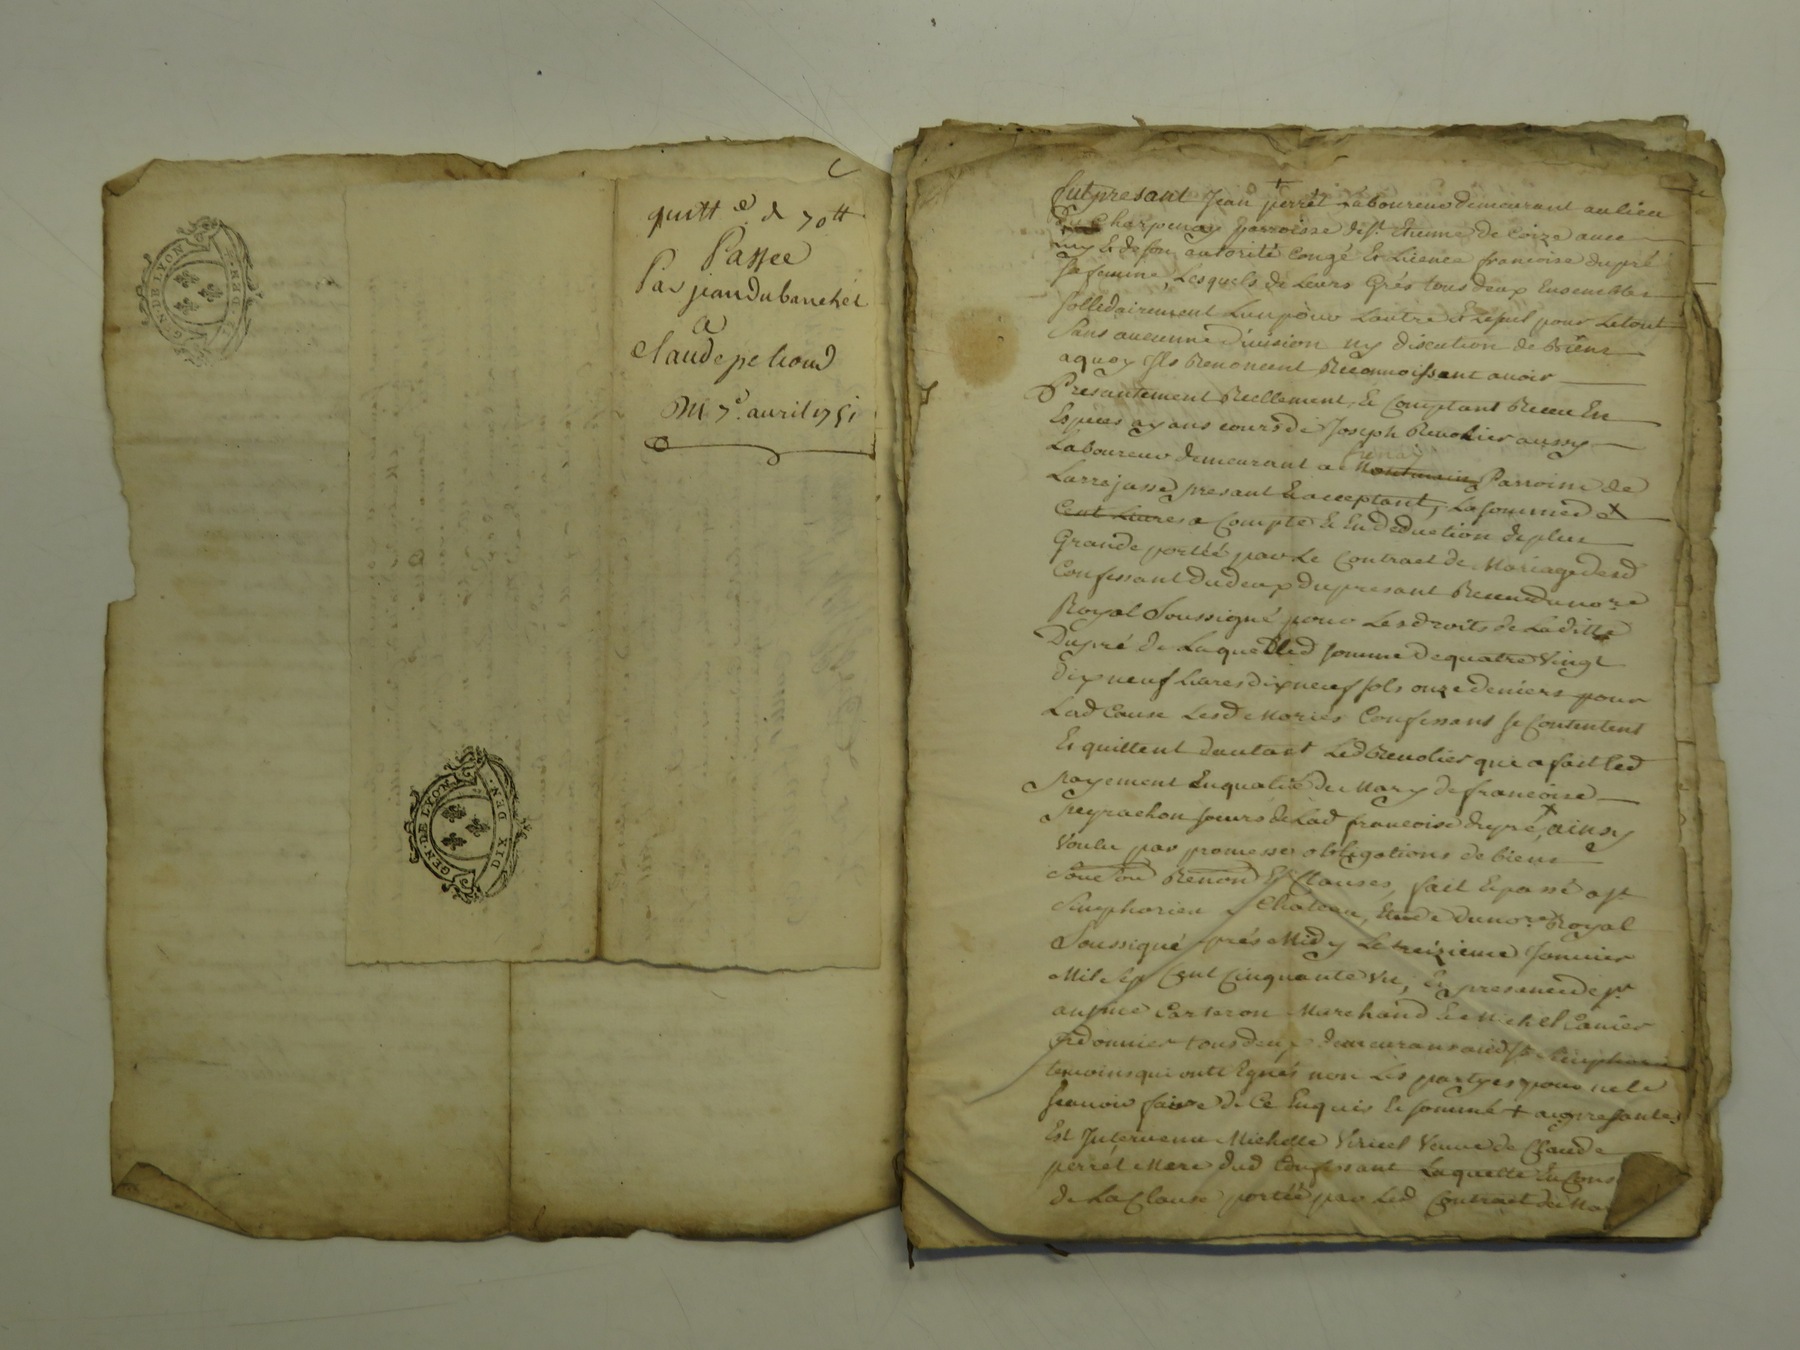 GEN. DE LYON
DIX DEN.
quitt.e de 70tt
Passee
Par jean du banchet
a
Claude pelioud
Du 7e. avril 1751
GEN. DE LYON
DIX DEN.
fut presant Jean perret Laboureur demeurant au lieu
du Charpenay parroisse de st. Etienne de Coize avec
luy & de son autorité congé et Licence francoise dupré
sa femme, Lesquels de Leurs Grés tous deux Ensembles
sollidairement L'un pour Lautre & Le seul pour Letout
Sans aucunne division ny discution de Biens
aquoy ils Renoncent Reconnoissent avoir
Presantement Reellement, & Comptant Receu En
Espèces ayans cours de Joseph Revolier aussy
Laboureur demeurant a Parroisse de
Larrejasse presant & acceptant, La somme de
Cent Livres a Compte & En deduction de plus
Grande portéé par Le Contract de Mariage desd
Confessant du deux du presant Receu du nore
Royal Soussigné pour Les droits de La ditte
Dupré de Laquelle d somme de quatre Vingt
dix neuf Livres dix neuf sols onze deniers pour
Lad Cause Lesd Mariés Confessant se Contentent
Et quittent dautant Led Revolier qui a fait led
payement En qualité de Mary de francoise
Peyrachon soeurs de Lad francoise dupré, ainsy
Voulu par promesses obligations de biens
Renond Et Clauses, fait & passé a st
Simphorien Le Chateau, Etude du nore Royal
Soussigné après Midy Le treizieme Janvier
Mil Sept Cent Cinquante Un, En presence de sr
Carteron Marchand & Michel
Cordonnier tous deux demeurans aud st Simphorien
temoins qui ont signés non Les partyes pour ne le
scavoir faire de Ce Enquis & sommé + aux presantes
Est Intervenue Michelle Viricel Veuve de Claude
perrét Mere dud Confessant Laquelle En Cons
de La Clause portéé par Led Contract de Ma